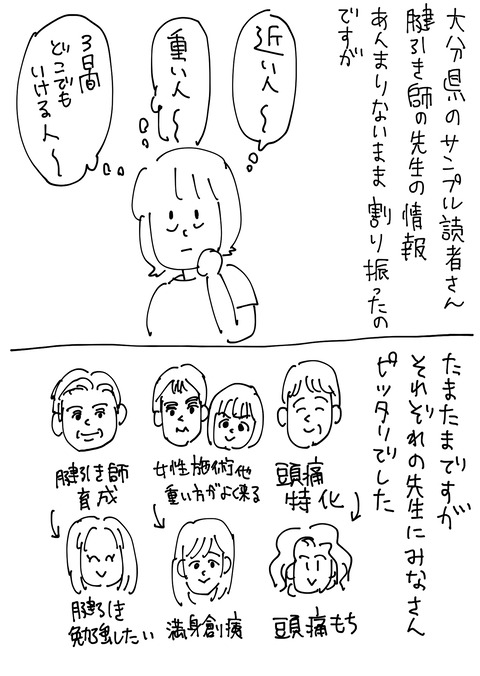 大分県のサンプル読者さん
腱引き師の先生の情報
あんまりないまま割り振ったの
ですが
近い人〜
重い人〜
3日間
どこでも
いける人〜
たまたまですが
それぞれの先生にみなさん
ピッタリでした
頭痛
特化
女性施術他
重い方がよく来る
腱引き師
育成
頭痛もち
満身創痍
腱引き
勉強したい